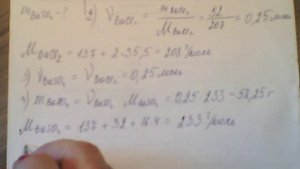 m BaSO₄ - ? 2) ν BaCl₂ = m BaCl₂ / M BaCl₂ = 52 / 208 = 0,25 моль
M BaCl₂ = 137 + 2·35,5 = 208 г/моль
3) ν BaSO₄ = ν BaCl₂ = 0,25 моль
4) m BaSO₄ = ν BaSO₄ · M BaSO₄ = 0,25 · 233 = 58,25 г
M BaSO₄ = 137 + 32 + 16·4 = 233 г/моль